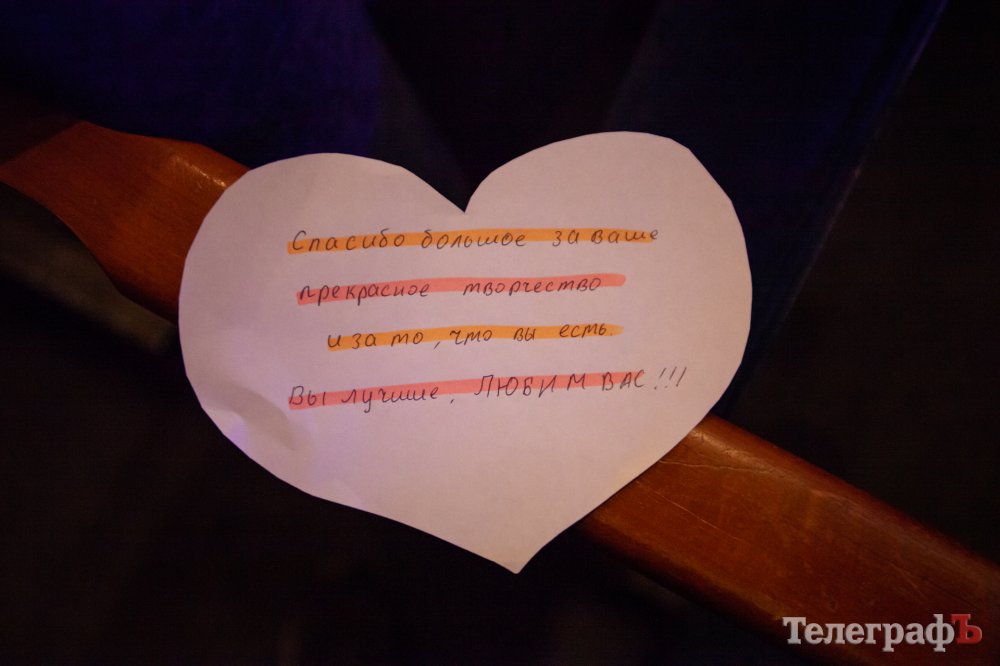 Спасибо большое за ваше
прекрасное творчество
и за то, что вы есть.
Вы лучшие, ЛЮБИМ ВАС!!!
ТелеграфЪ